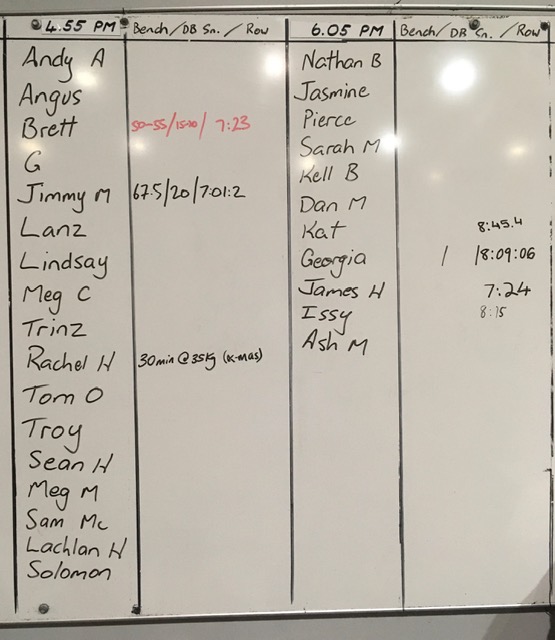 4.55 PM Bench/DB Sn. / Row
Andy A
Angus
Brett 50-55/15-20/ 7:23
G
Jimmy M 67.5/20/7:01.2
Lanz
Lindsay
Meg C
Trinz
Rachel H 30min @ 35kg (K-mas)
Tom O
Troy
Sean H
Meg M
Sam Mc
Lachlan H
Solomon
6.05 PM Bench/ DB Sn. / Row
Nathan B
Jasmine
Pierce
Sarah M
Kell B
Dan M
Kat 8:45.4
Georgia / /8:09:06
James H 7:24
Issy 8:15
Ash M